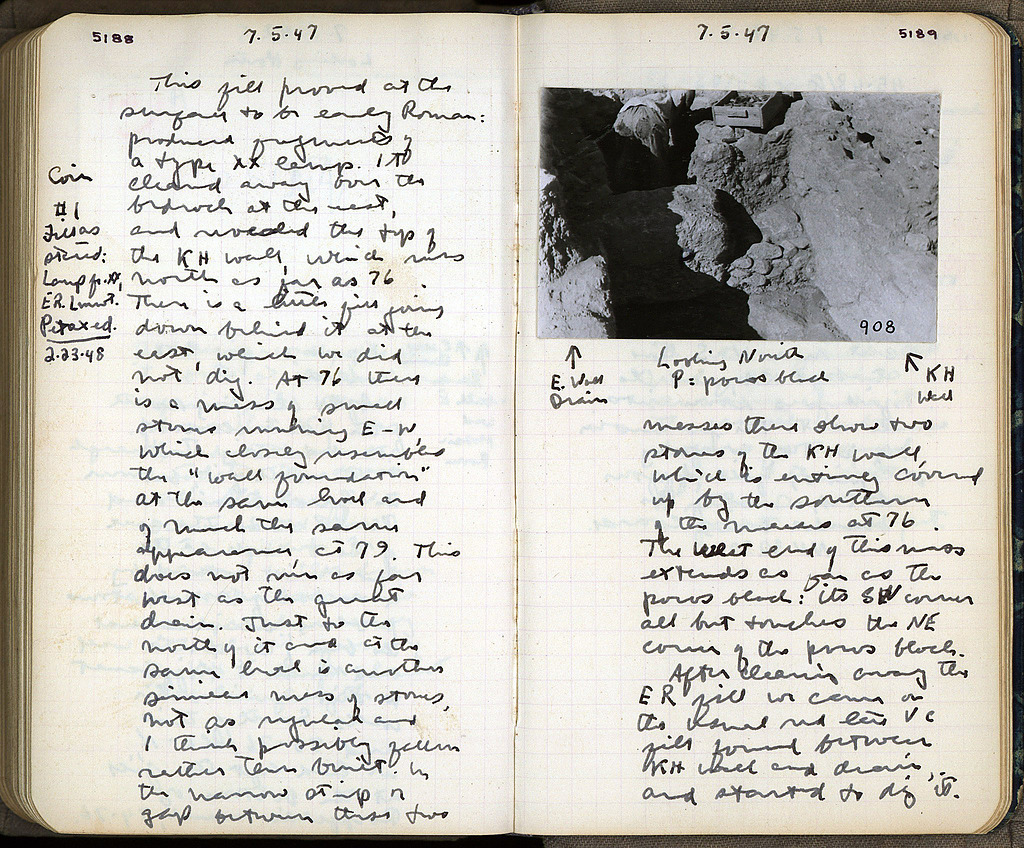 5188
7.5.47
This fill proved at the
surface to be early Roman:
produced fragments of
a type XX lamp. It
cleaned away over the
bedrock at the west,
and revealed the top of
the KH wall, which runs
north as far as 76.
There is a little fill going
down behind it at the
east, which we did
not dig. At 76 there
is a mess of small
stones running E-W,
which closely resembles
the "wall foundation"
at the same level and
of much the same
appearance at 79. This
does not run as far
west as the great
drain. Just to the
north of it and at the
same level is another
similar mess of stones,
not as regular and
I think possibly fallen
rather than built. In
the narrow strip or
gap between these two
Coin
#1
Fill as
Lamp fr. XX,
ER.
2.23.48
7.5.47
5189
908
E. Wall
Drain
Looking North
P: poros block
KH
Wall
messes there show two
stones of the KH wall,
which is entirely covered
up by the southern
of the messes at 76.
The west end of this mass
extends as far as the
poros block: its SW corner
all but touches the NE
corner of the poros block.
After cleaning away the
ER fill we came on
the usual red late V c
fill found between
KH wall and drain,
and started to dig it.